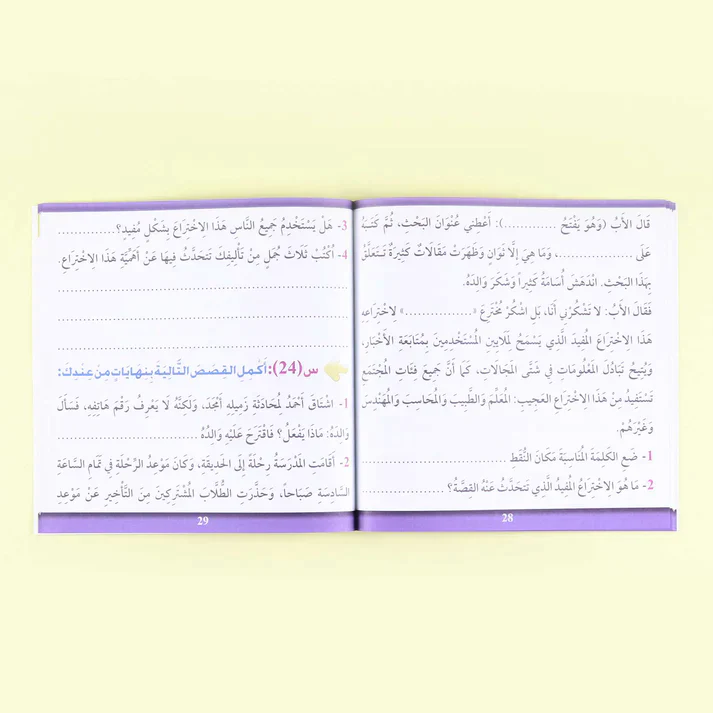 قَالَ الأَبُ (وَهُوَ يَفْتَحُ .............): أَعْطِنِي عُنْوَانَ البَحْثِ، ثُمَّ كَتَبَهُ
عَلَى ...................، وَمَا هِيَ إِلَّا ثَوَانٍ وَظَهَرَتْ مَقَالَاتٌ كَثِيرَةٌ تَتَعَلَّقُ
بِهَذَا البَحْثِ. انْدَهَشَ أُسَامَةُ كَثِيراً وَشَكَرَ وَالِدَهُ.
فَقَالَ الأَبُ: لَا تَشْكُرْنِي أَنَا، بَلِ اشْكُرْ مُخْتَرِعَ «................» لِاخْتِرَاعِهِ
هَذَا الِاخْتِرَاعَ المُفِيدَ الَّذِي يَسْمَحُ لِمَلَايِينِ المُسْتَخْدِمِينَ بِمُتَابَعَةِ الأَخْبَارِ،
وَيُتِيحُ تَبَادُلَ المَعْلُومَاتِ فِي شَتَّى المَجَالَاتِ، كَمَا أَنَّ جَمِيعَ فِئَاتِ المُجْتَمَعِ
تَسْتَفِيدُ مِنْ هَذَا الِاخْتِرَاعِ العَجِيبِ: المُعَلِّمَ وَالطَّبِيبَ وَالمُحَاسِبَ وَالمُهَنْدِسَ
وَغَيْرَهُمْ.
1- ضَعِ الكَلِمَةَ المُنَاسِبَةَ مَكَانَ النُّقَطِ ..............................
2- مَا هُوَ الِاخْتِرَاعُ المُفِيدُ الَّذِي تَتَحَدَّثُ عَنْهُ القِصَّةُ؟ ..................
28
3- هَلْ يَسْتَخْدِمُ جَمِيعُ النَّاسِ هَذَا الِاخْتِرَاعَ بِشَكْلٍ مُفِيدٍ؟ ..............
4- اُكْتُبْ ثَلَاثَ جُمَلٍ مِنْ تَأْلِيفِكَ تَتَحَدَّثُ فِيهَا عَنْ أَهَمِّيَّةِ هَذَا الِاخْتِرَاعِ.
............................................................
............................................................
............................................................
س(24): أَكْمِلِ القِصَصَ التَّالِيَةَ بِنِهَايَاتٍ مِنْ عِنْدِكَ:
1- اشْتَاقَ أَحْمَدُ لِمُحَادَثَةِ زَمِيلِهِ أَمْجَدَ، وَلَكِنَّهُ لَا يَعْرِفُ رَقْمَ هَاتِفِهِ، فَسَأَلَ
وَالِدَهُ: مَاذَا يَفْعَلُ؟ فَاقْتَرَحَ عَلَيْهِ وَالِدُهُ ..............................
2- أَقَامَتِ المَدْرَسَةُ رِحْلَةً إِلَى الحَدِيقَةِ، وَكَانَ مَوْعِدُ الرِّحْلَةِ فِي تَمَامِ السَّاعَةِ
السَّادِسَةِ صَبَاحاً، وَحَذَّرَتِ الطُّلَّابَ المُشْتَرِكِينَ مِنَ التَّأْخِيرِ عَنْ مَوْعِدِ
29